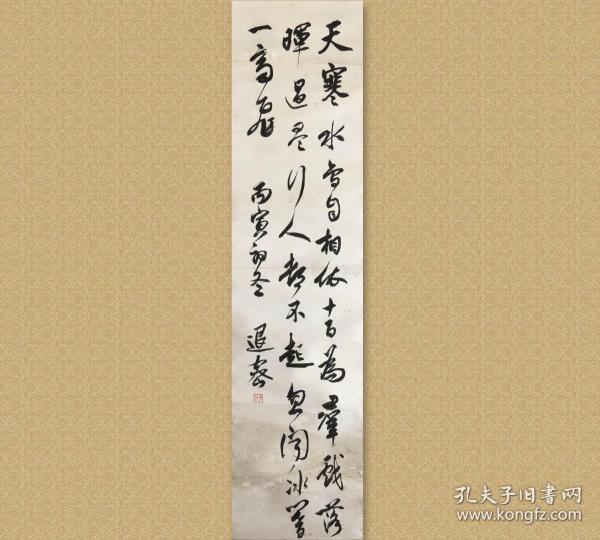 天寒水鸟自相依十百為羣戲落
暉過尽行人都不起忽闻冰響
一齊飛
丙寅初冬 退密
孔夫子旧書网
www.kongfz.com